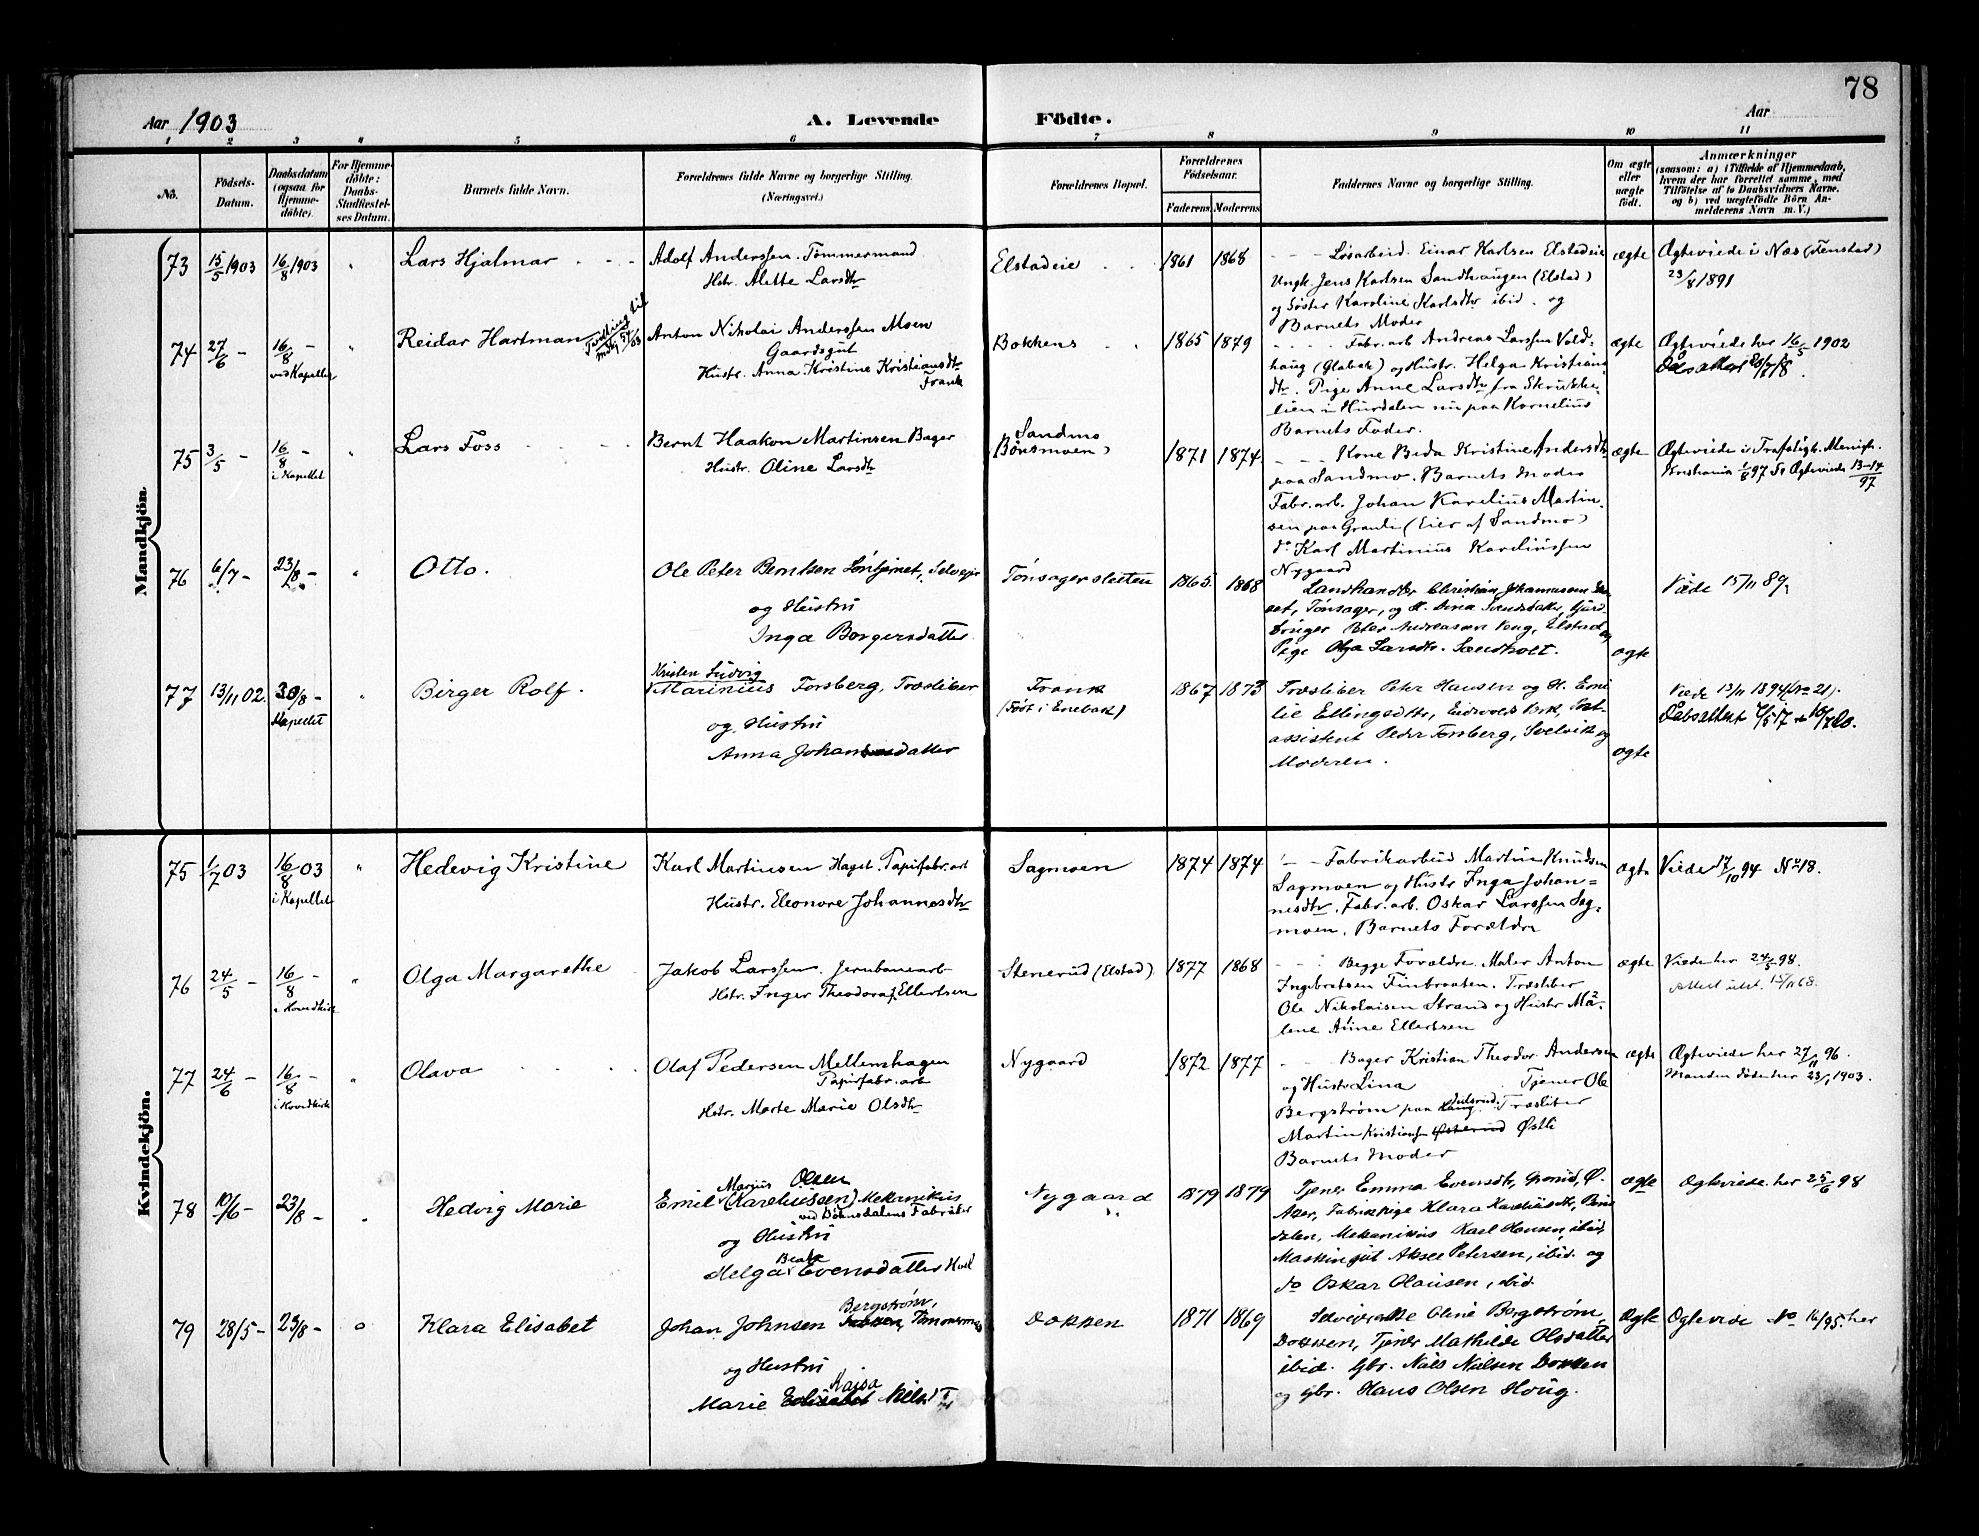 78
Aar 1903
A. Levende
Födte.
Aar
1 2 3 " 5 6 7 8 9 10 11
No.
Födsels-Datum.
Daabsdatum (ogsaa for Hjemme-döbte).
For Hjemme-döbte: Daabs-Stadfæstel-ses Datum.
Barnets fulde Navn.
Forældrenes fulde Navne og borgerlige Stilling.
(Næringsvei.)
Forældrenes Bopæl.
Forældrenes Födselsaar.
Faderens Moderens
Faddernes Navne og borgerlige Stilling.
Om ægte eller uægte födt.
Anmærkninger
(saasom: a) i Tilfælde af Hjemmedaab,
hvem der har forrettet samme, med
Tilföielse af to Daabsvidners Navne.
og b) ved uægtefödte Börn An-
melderens Navn m. V.)
Mandkjön.
73 15/5 1903 16/8 1903 " Lars Hjalmar
Adolf Anderssen. Tømmermand
Hstr. Alette Larsdtr
Elstadeie 1861 1868
Løsarbeid. Einar Karlsen Elstadeie
Ungk. Jens Karlsen Sandhaugen (Elstad)
og Søster Karoline Karlsdtr ibid. og
Barnets Moder
ægte
Ægteviede i Næs (Fenstad)
23/8 1891
74 27/6 - 16/8 - ved Kapellet " Reidar Hartman
Anton Nikolai Anderssen Moen
Gaardsgut
Hustr. Anna Kristine Kristiansdtr
Frank
Bokkens 1865 1879
Fabr. arb Andreas Larssen Vold-
haug (Glabak) og Hustr. Helga Kristians
dtr. Pige Anne Larsdtr fra Skrukke-
lien i Hurdalen nu paa Kornelius
Barnets Fader.
ægte
Ægteviede her 16/5 1902
75 3/5 - 16/8 - i Kapellet " Lars Foss
Bernt Haakon Martinsen Bager
Hustr. Oline Larsdtr
Sandmo
Bønsmoen) 1871 1874
Kone Beda Kristine Andersdtr
paa Sandmo. Barnets Moder
Fabr. arb. Johan Karelius Martin
sen paa Granli (Eier af Sandmo)
do Karl Martinius Kareliussen
Nygaard
ægte
Ægteviede i Trefoldigh. Menigh.
Kristiania 1/8 97
76 6/7 - 23/8 - " Otto.
Ole Peter Berntsen Løntjernet, Selveier
og Hustru
Inga Borgersdatter
Tønsagersletten 1865 1868
Landhandler Christian Johannessen
Tønsager, og
bruger Peter Andreassen
Pige Olga Larsdtr. Sandholt.
ægte
Viede 15/11 89
77 13/11 02. 30/8 - Kapellet " Birger Rolf.
Kristen Ludvig
Marinius Forsberg, Træsliber
og Hustru
Anna Johannesdatter
Frank
(Født i Enebak) 1867 1873
Træsliber Peter Hansen og H. Emi
lie Ellingsdtr, Eidsvolds Værk, Post-
assistent Peder Forsberg, Svelvik og
Moderen.
ægte
Viede 13/11 1894 (No 21).
Kvindekjön.
75 1/7 03 16/8 03 i Kapellet " Hedevig Kristine
Karl Martinsen Haget. Papirfabr. arb
Hustr. Eleonore Johannesdtr
Sagmoen 1874 1874
Fabrikarbeid Martin Knudsen
Sagmoen og Hustr Inga Johan=
nesdtr. Fabr. arb. Oskar Larssen Sag=
moen, Barnets Forældre
ægte
Viede 17/10 94 No 18.
76 24/5 - 16/8 - i Hovedkirk " Olga Margarethe
Jakob Larssen. Jernbanearb
Hstr. Inger Theodora Ellertsen
Stenerud (Elstad) 1877 1868
Begge Forældre. Maler Anton
Ingebretsen Finbraaten. Træsliber
Ole Nikolaisen Strand og Hustr Ma-
lene Anne Ellertsen
ægte
Viede her 24/5 98.
Attest utst. 15/11 68.
77 24/6 - 16/8 - i Hovedkirk " Olava
Olaf Pedersen Mellemhagen
Papirfabr. arb
Hstr. Marte Marie Olsdtr
Nygaard 1872 1877
Bager Kristian Theodor Andersen
og Hustr Lina Tjener Ole
Bergstrøm paa Træsliber
Martin Kristiansen Østerud Østli
Barnets Moder
ægte
Ægteviede her 27/11 96.
Manden døde her 23/1 1903.
78 10/6 - 23/8 - " Hedvig Marie
Marius Olsen
Emil (Kareliussen) Mekanikus
ved Bøhnsdalens Fabrikker
og Hustru
Beate
Helga Evensdatter
Nygaard 1879 1879
Tjener Emma Evensdtr, Grønid, Ø.
Aker, Fabrikpige Klara Kareliusdtr, Bøns
dalen, Mekanikus Karl Hansen, ibid,
Maskingut Aksel Petersen, ibid. og
do Oskar Olausen, ibid.
ægte
Ægteviede her 25/6 98
79 28/5 - 23/8 - " Klara Elisabet
Bergstrøm,
Johan Johnsen Tømmermand
og Hustru
Kajsa
Marie Elisabet
Dokken 1871 1869
Oline Bergstrøm,
Dokken, Tjener Mathilde Olsdatter
ibid. Gbr. Nils Nilsen Dokken
og Gbr. Hans Olsen Houg.
Ægte
Ægteviede No 16/95. her